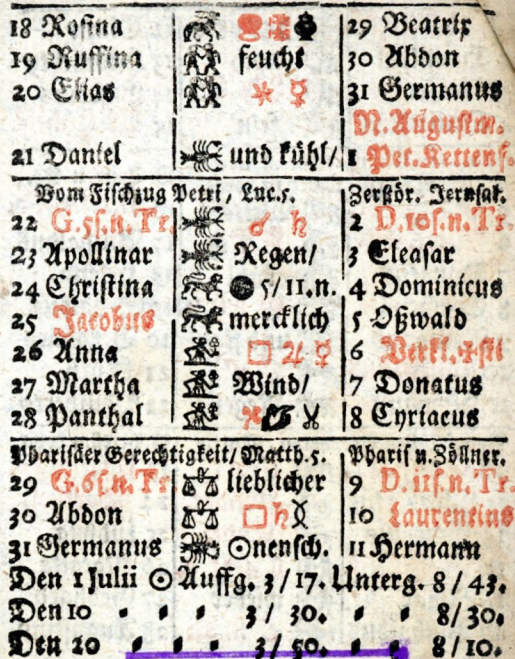 18 Rosina 29 Beatrix
19 Ruffina feucht 30 Abdon
20 Elias ⚹ ☿ 31 Germanus
N. Augustm.
21 Daniel und kühl/ 1 Pet. Kettenf.
Vom Fischzug Petri, Luc. 5. Zerstör. Jerusal.
22 G. 5 s. n. Tr. ☌ ♄ 2 D. 10 s. n. Tr.
23 Apollinar Regen/ 3 Eleasar
24 Christina ● 5/11. n. 4 Dominicus
25 Jacobus mercklich 5 Oßwald
26 Anna □ ♃ ☿ 6 Verkl. ✠sti
27 Martha Wind/ 7 Donatus
28 Panthal 8 Cyriacus
Pharisäer Gerechtigkeit/ Matth. 5. Pharis u. Zöllner.
29 G. 6 s. n. Tr. lieblicher 9 D. 11 s. n. Tr.
30 Abdon □ ♄ 10 Laurentius
31 Germanus ☉nensch. 11 Hermann
Den 1 Julii ☉ Auffg. 3/17. Unterg. 8/43.
Den 10 3/30. 8/30.
Den 20 3/50. 8/10.